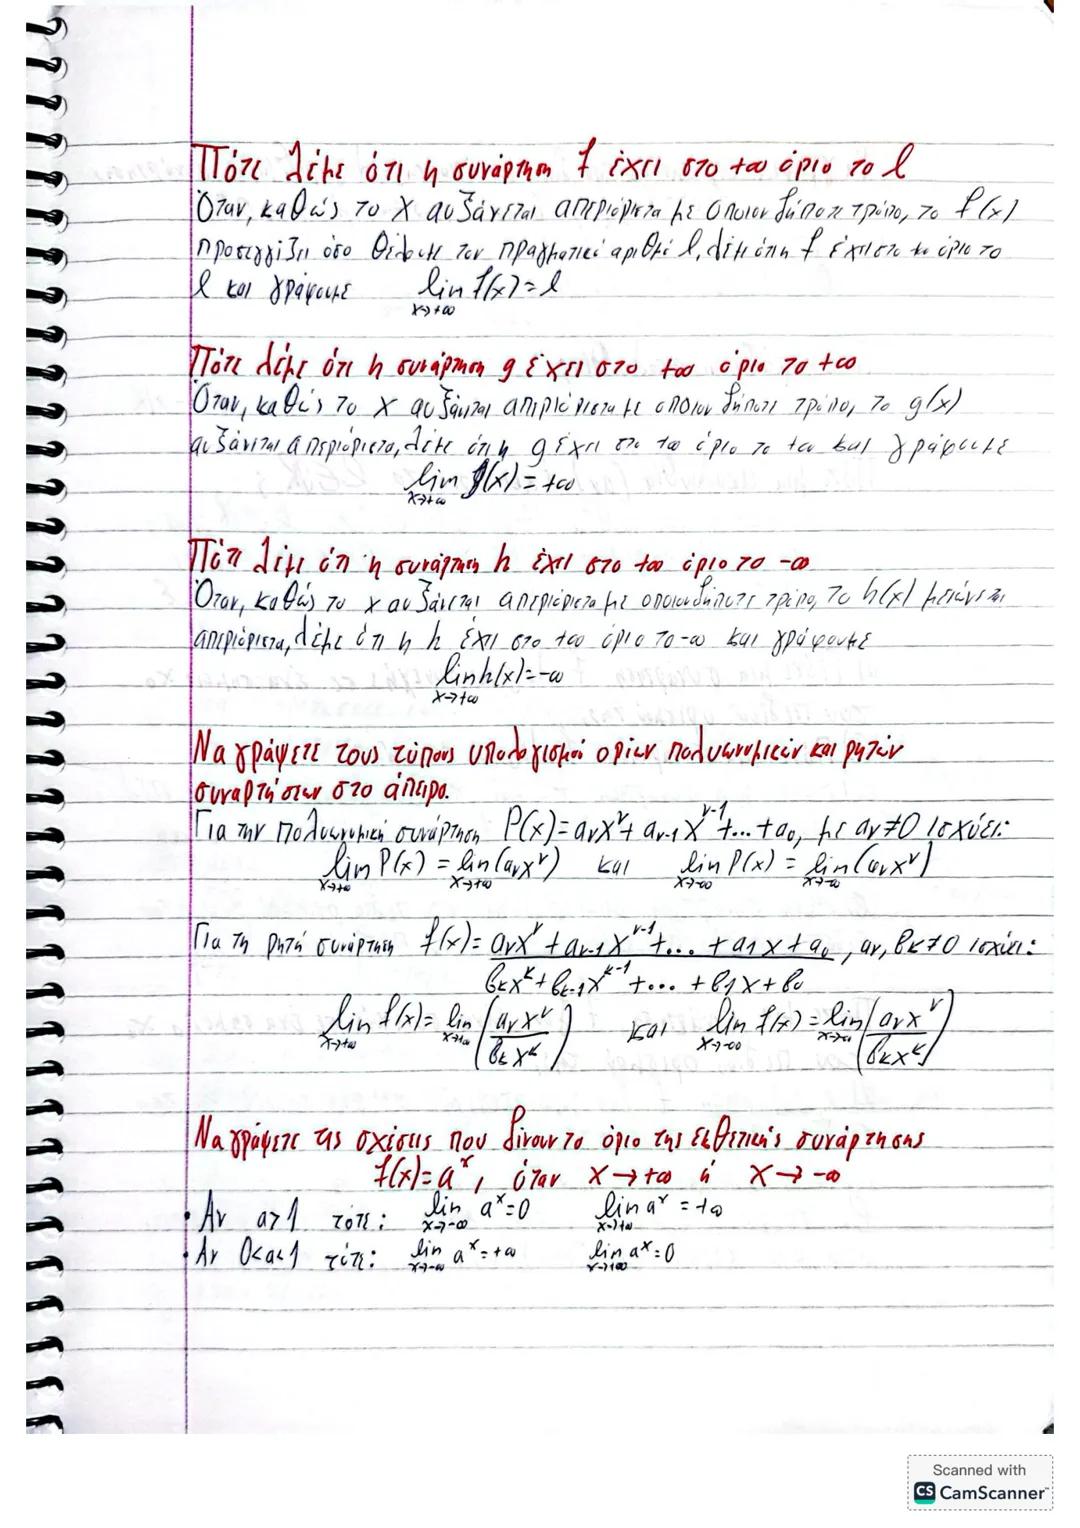 Πότε λέμε ότι η συνάρτηση f έχει στο +∞ όριο το l
Όταν, καθώς το x αυξάνεται απεριόριστα με οποιονδήποτε τρόπο, το f(x)
προσεγγίζει όσο θέλουμε τον πραγματικό αριθμό l, λέμε ότι η f έχει στο +∞ όριο το
l και γράφουμε lim f(x)=l
x→+∞
Πότε λέμε ότι η συνάρτηση g έχει στο +∞ όριο το +∞
Όταν, καθώς το x αυξάνεται απεριόριστα με οποιονδήποτε τρόπο, το g(x)
αυξάνεται απεριόριστα, λέμε ότι η g έχει στο +∞ όριο το +∞ και γράφουμε
lim g(x)=+∞
x→+∞
Πότε λέμε ότι η συνάρτηση h έχει στο +∞ όριο το -∞
Όταν, καθώς το x αυξάνεται απεριόριστα με οποιονδήποτε τρόπο, το h(x) μειώνεται
απεριόριστα, λέμε ότι η h έχει στο +∞ όριο το -∞ και γράφουμε
lim h(x)=-∞
x→+∞
Να γράψετε τους τύπους υπολογισμού ορίων πολυωνυμικών και ρητών
συναρτήσεων στο άπειρο.
Για την πολυωνυμική συνάρτηση P(x)=aνx^ν+aν-1x^ν-1+...+a0, με aν≠0 ισχύει:
lim P(x) = lim (aνx^ν) και lim P(x) = lim (aνx^ν)
x→+∞ x→+∞ x→-∞ x→-∞
Για τη ρητή συνάρτηση f(x)= aνx^ν+aν-1x^ν-1+...+a1x+a0, aν, βκ≠0 ισχύει:
βκx^κ+βκ-1x^κ-1+...+β1x+β0
lim f(x)= lim (aνx^ν/βκx^κ) και lim f(x)=lim (aνx^ν/βκx^κ)
x→+∞ x→+∞ x→-∞ x→-∞
Να γράψετε τις σχέσεις που δίνουν το όριο της εκθετικής συνάρτησης
f(x)=a^x, όταν x→+∞ ή x→-∞
• Αν a>1 τότε: lim a^x=0 lim a^x=+∞
x→-∞ x→+∞
• Αν 0<a<1 τότε: lim a^x=+∞ lim a^x=0
x→-∞ x→+∞
Scanned with
CS CamScanner